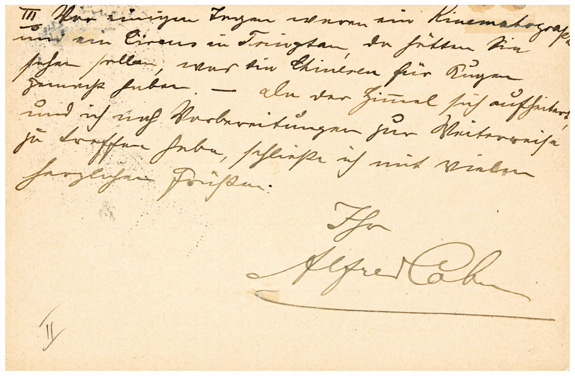 III Vor einigen Tagen waren ein Kinematograph
und ein Circus in Tsingtau, da hätten Sie
sehen sollen, was die Chinesen für Augen
gemacht haben. — Da der Himmel sich aufheitert,
und ich noch Vorbereitungen zur Weiterreise
zu treffen habe, schließe ich mit vielen
herzlichen Grüßen.
Ihr
Alfred Cohn
II